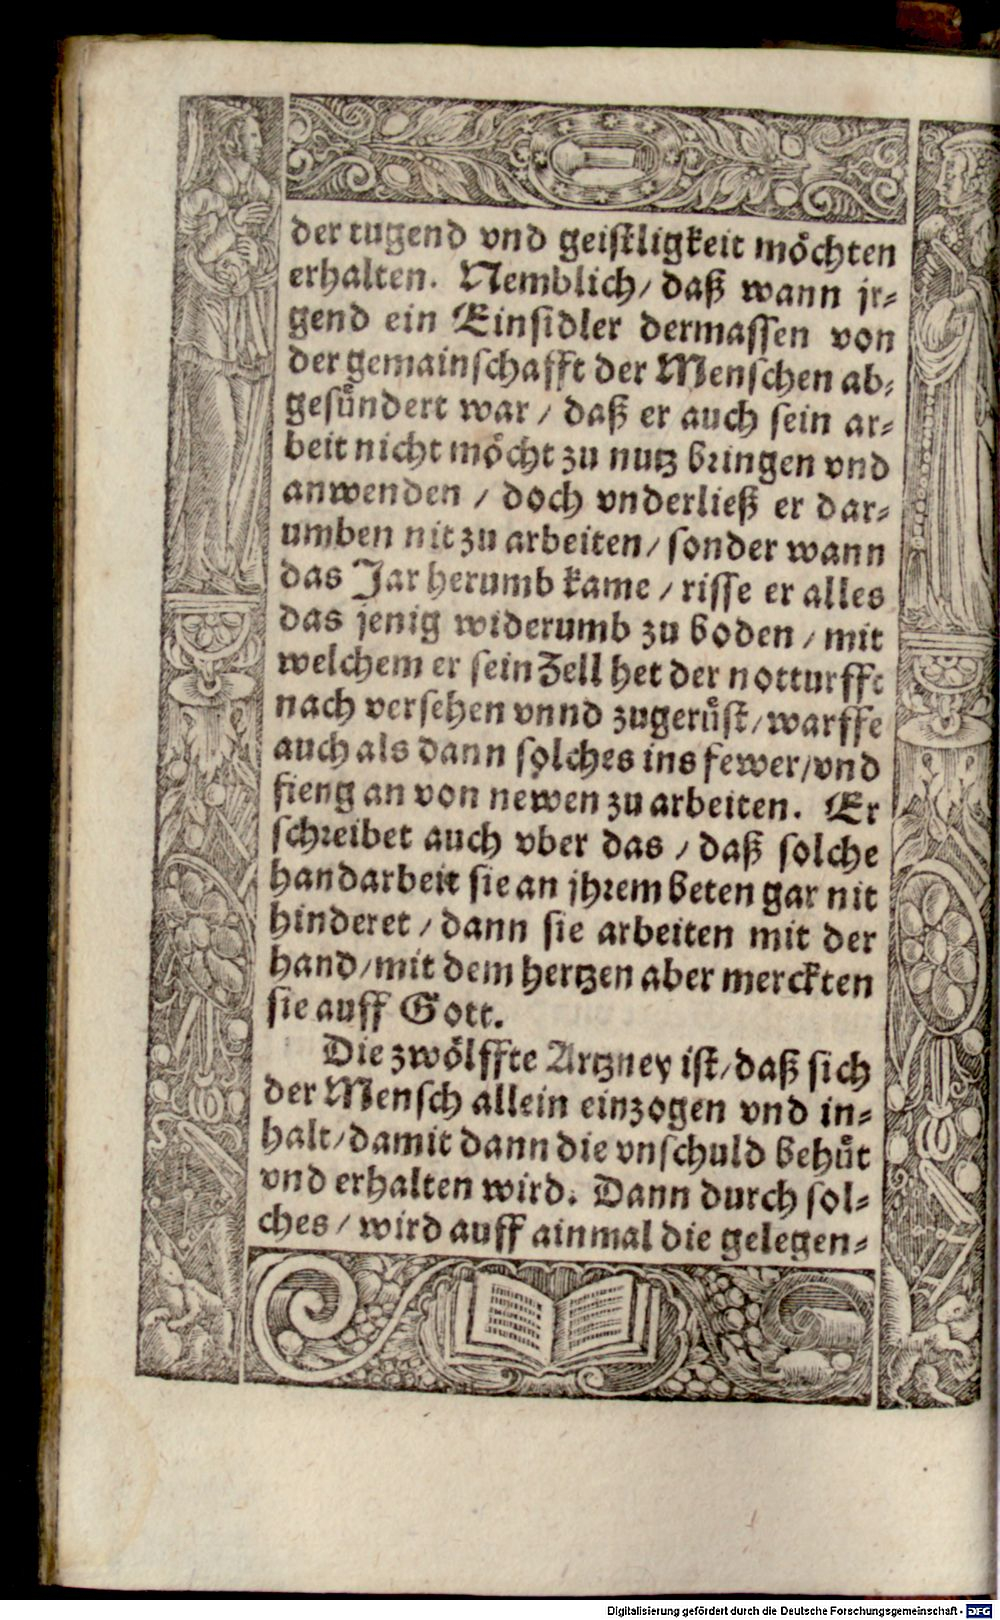 der tugend vnd geistligkeit möchten
erhalten. Nemblich/ daß wann jr-
gend ein Einsidler dermassen von
der gemainschafft der Menschen ab-
gesündert war / daß er auch sein ar-
beit nicht möcht zu nutz bringen vnd
anwenden / doch vnderließ er dar-
umben nit zu arbeiten/ sonder wann
das Jar herumb kame / risse er alles
das jenig widerumb zu boden / mit
welchem er sein Zell het der notturfft
nach versehen vnnd zugerůst/ warffe
auch als dann solches ins fewer/vnd
fieng an von newen zu arbeiten. Er
schreibet auch vber das / daß solche
handarbeit sie an jhrem beten gar nit
hinderet / dann sie arbeiten mit der
hand/mit dem hertzen aber merckten
sie auff Gott.
Die zwölffte Artzney ist/daß sich
der Mensch allein einzogen vnd in-
halt/damit dann die vnschuld behůt
vnd erhalten wird. Dann durch sol-
ches / wird auff ainmal die gelegen-
Digitalisierung gefördert durch die Deutsche Forschungsgemeinschaft - DFG